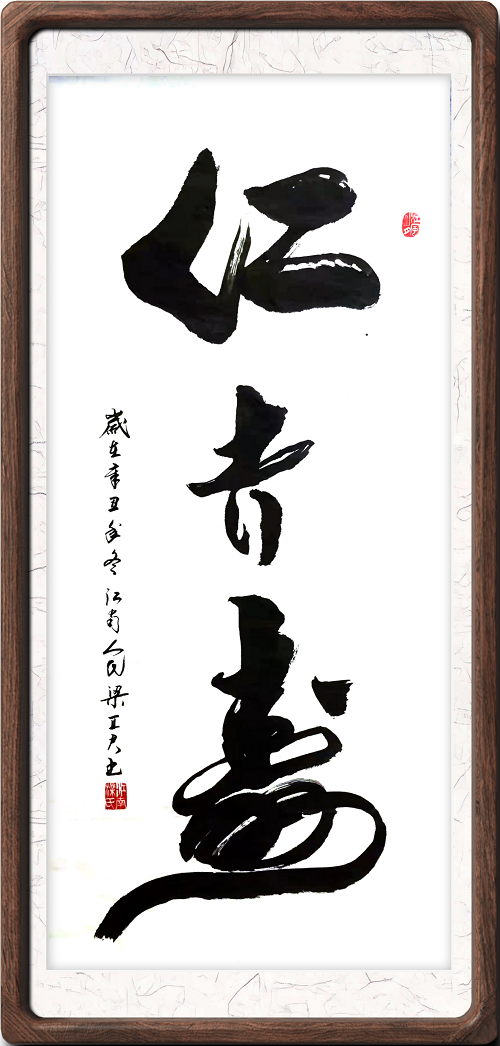 仁者寿
岁在辛丑年冬江南人民梁正君书